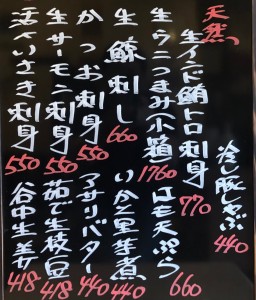 天然
生インド鮪トロ刺身 770
冷し豚しゃぶ 440
生うにつまみ(小箱) 1760
はも天ぷら 660
生鯨刺し 660
いかと里芋煮 440
かつお刺身 550
アサリバター 440
生サーモン刺身 550
茹で生枝豆 418
活〆いさき刺身 550
谷中生姜 418